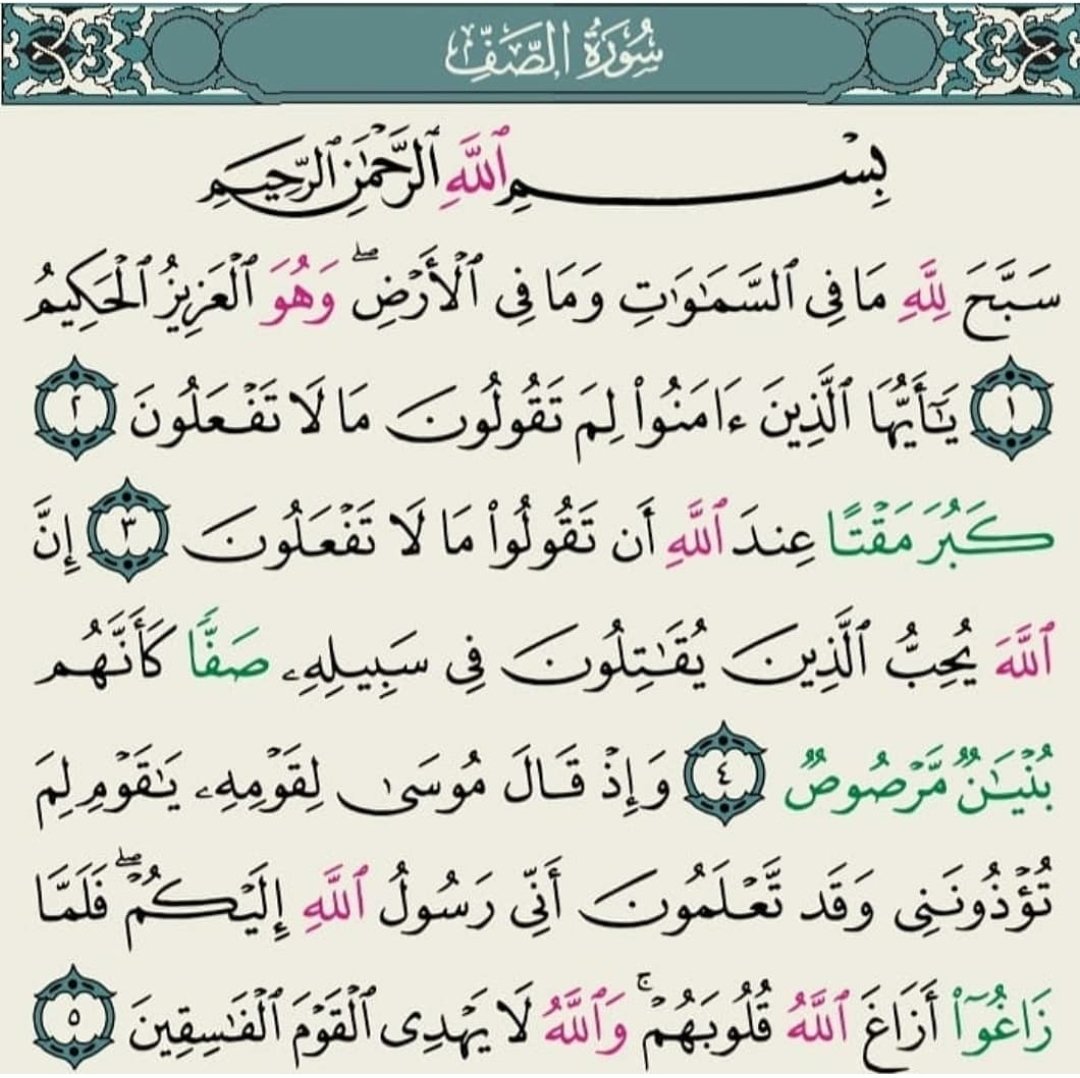 سُورَةُ الصَّفِّ
بِسْمِ ٱللَّهِ ٱلرَّحْمَٰنِ ٱلرَّحِيمِ
سَبَّحَ لِلَّهِ مَا فِى ٱلسَّمَٰوَٰتِ وَمَا فِى ٱلْأَرْضِ ۖ وَهُوَ ٱلْعَزِيزُ ٱلْحَكِيمُ
١ يَٰٓأَيُّهَا ٱلَّذِينَ ءَامَنُوا۟ لِمَ تَقُولُونَ مَا لَا تَفْعَلُونَ ٢
كَبُرَ مَقْتًا عِندَ ٱللَّهِ أَن تَقُولُوا۟ مَا لَا تَفْعَلُونَ ٣ إِنَّ
ٱللَّهَ يُحِبُّ ٱلَّذِينَ يُقَٰتِلُونَ فِى سَبِيلِهِۦ صَفًّا كَأَنَّهُم
بُنْيَٰنٌ مَّرْصُوصٌ ٤ وَإِذْ قَالَ مُوسَىٰ لِقَوْمِهِۦ يَٰقَوْمِ لِمَ
تُؤْذُونَنِى وَقَد تَّعْلَمُونَ أَنِّى رَسُولُ ٱللَّهِ إِلَيْكُمْ ۖ فَلَمَّا
زَاغُوٓا۟ أَزَاغَ ٱللَّهُ قُلُوبَهُمْ ۚ وَٱللَّهُ لَا يَهْدِى ٱلْقَوْمَ ٱلْفَٰسِقِينَ ٥